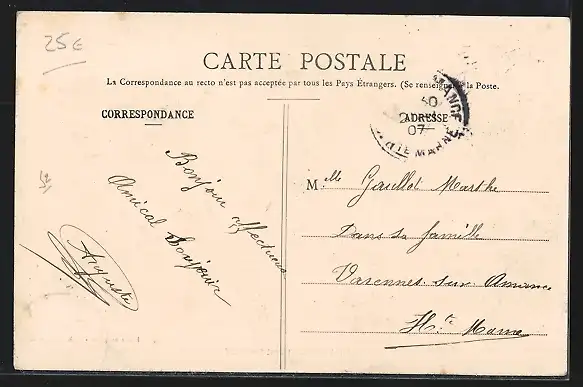 25€
CARTE POSTALE
La Correspondance au recto n'est pas acceptée par tous les Pays Étrangers. (Se renseigner à la Poste.
CORRESPONDANCE
ADRESSE
07
TE MARNE
Bonjour affectueux
Amical Bonjour
Auguste
M.lle Gaullot Marthe
Dans sa famille
Varennes sur Amance
Hte Marne